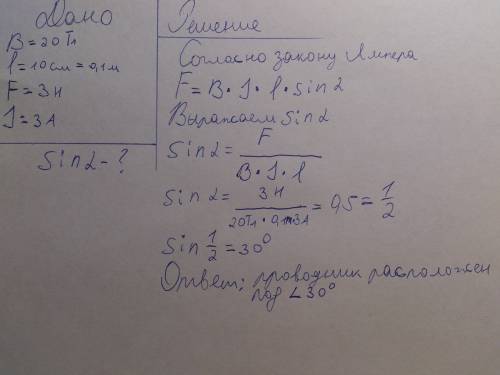 Дано
B = 20 Тл
l = 10 см = 0,1 м
F = 3 Н
I = 3 А
Sin α - ?
Решение
Согласно закону Ампера
F = B · I · l · sin α
Выражаем Sin α
Sin α = F / B · I · l
Sin α = 3 Н / 20Тл · 0,1м·3А = 0,5 = 1/2
Sin 1/2 = 30°
Ответ: проводник расположен
под ∠30°